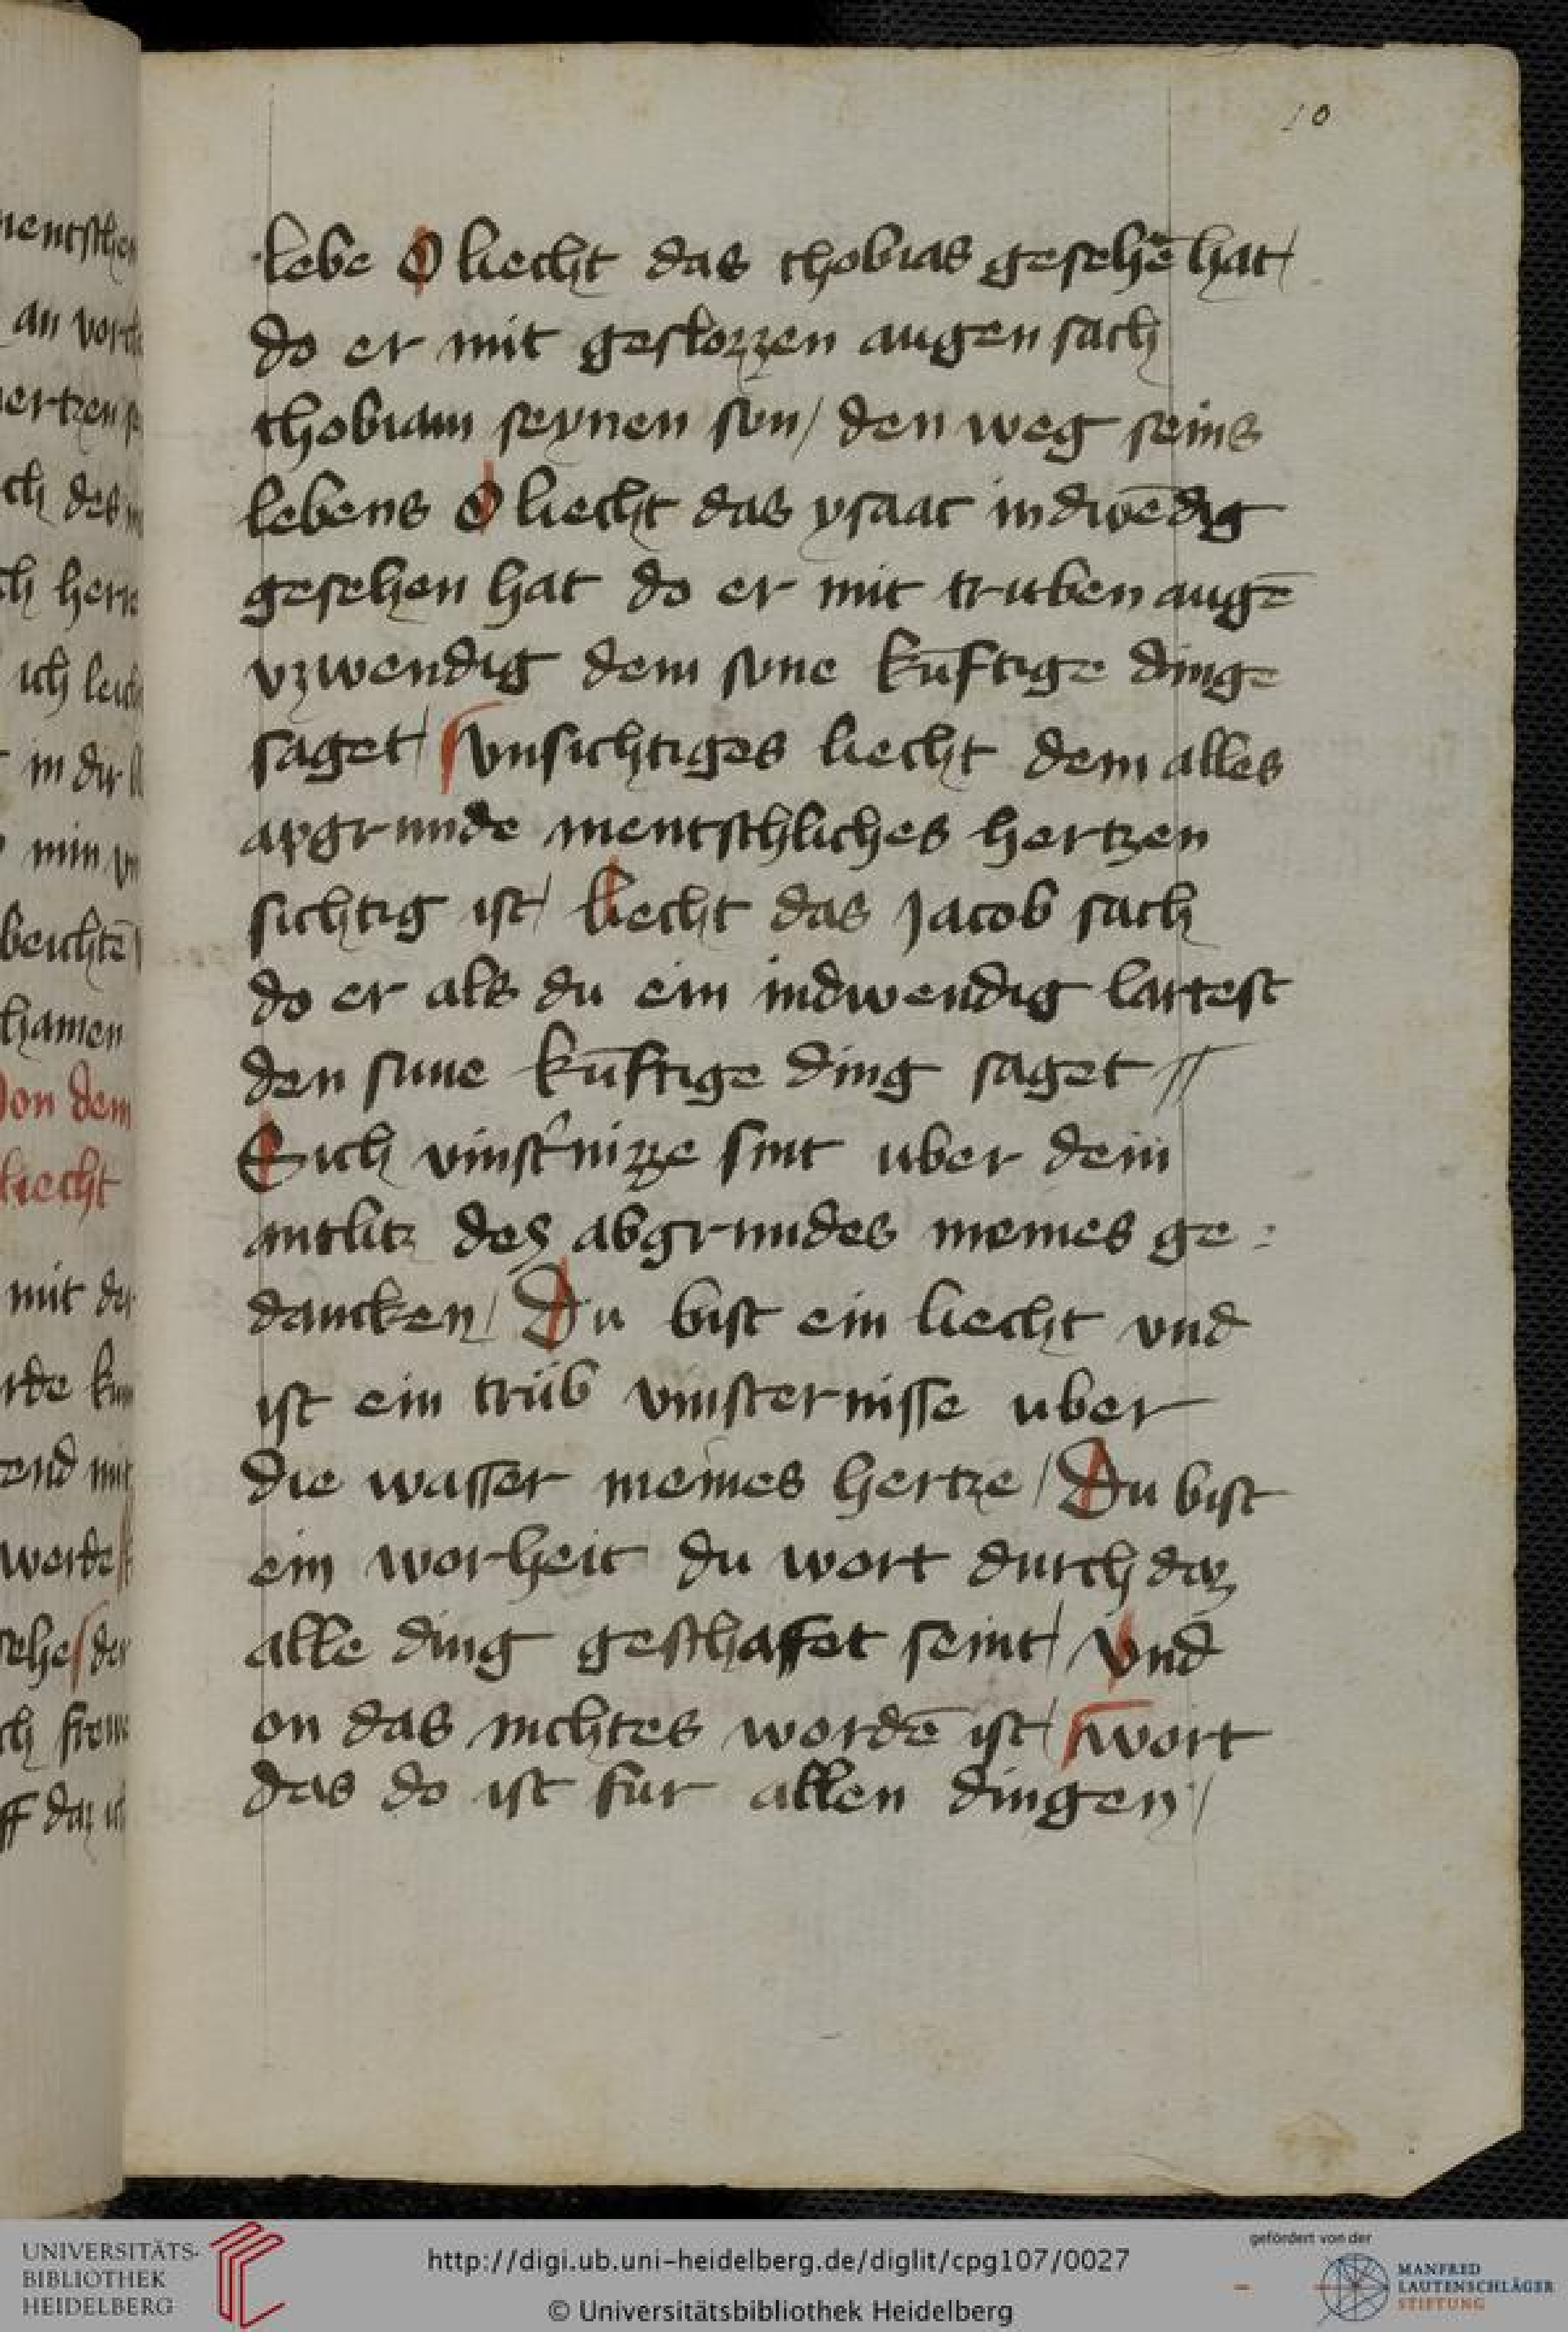 10
lebe O liecht das thobias gesehē hat /
do er mit geslozzen augen sach
thobiam seynen sun / den weg seins
lebens O liecht das ysaac indwēdig
gesehen hat do er mit truben augē
vzwendig dem sune kūftige dinge
saget / vnsichtiges liecht dem alles
apgrunde mentschliches hertzen
sichtig ist / liecht das Jacob sach
do er als du ein indwendig lartest
den sune kūftige ding saget //
Sich vinst'nizze sint uber dem
antlitz dez abgrundes meines ge :
dancken / Du bist ein liecht vnd
ist ein trüb vinsternisse uber
die wasser meines hertze / Du bist
ein worheit du wort durch daz
alle ding geschaffet seint / Vnd
on das nichtes wordē ist / wort
das do ist fur allen dingen /
mentschen
an
des
ich
in dir
min
beichtē
dem
liecht
mit der
mit
daz
UNIVERSITÄTS-
BIBLIOTHEK
HEIDELBERG
http://digi.ub.uni-heidelberg.de/diglit/cpg107/0027
© Universitätsbibliothek Heidelberg
gefördert von der
MANFRED
LAUTENSCHLÄGER
STIFTUNG